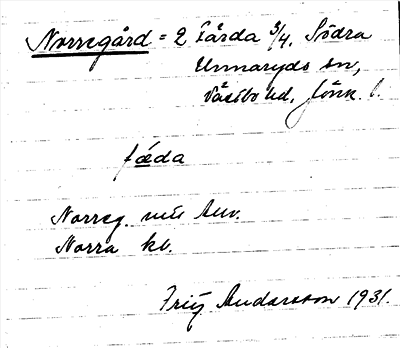 Norregård = 2 Färda 3/4, Södra
Unnaryds sn,
Västbo hd, Jönk. l.
fǽda
Norreg. mus Anv.
Norra kv.
Fritz Andersson 1931.